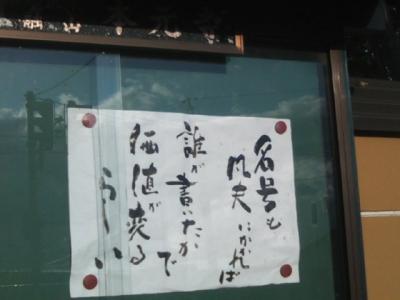 名号も
凡夫にかかれば
誰が書いたかで
価値が変る
らしい